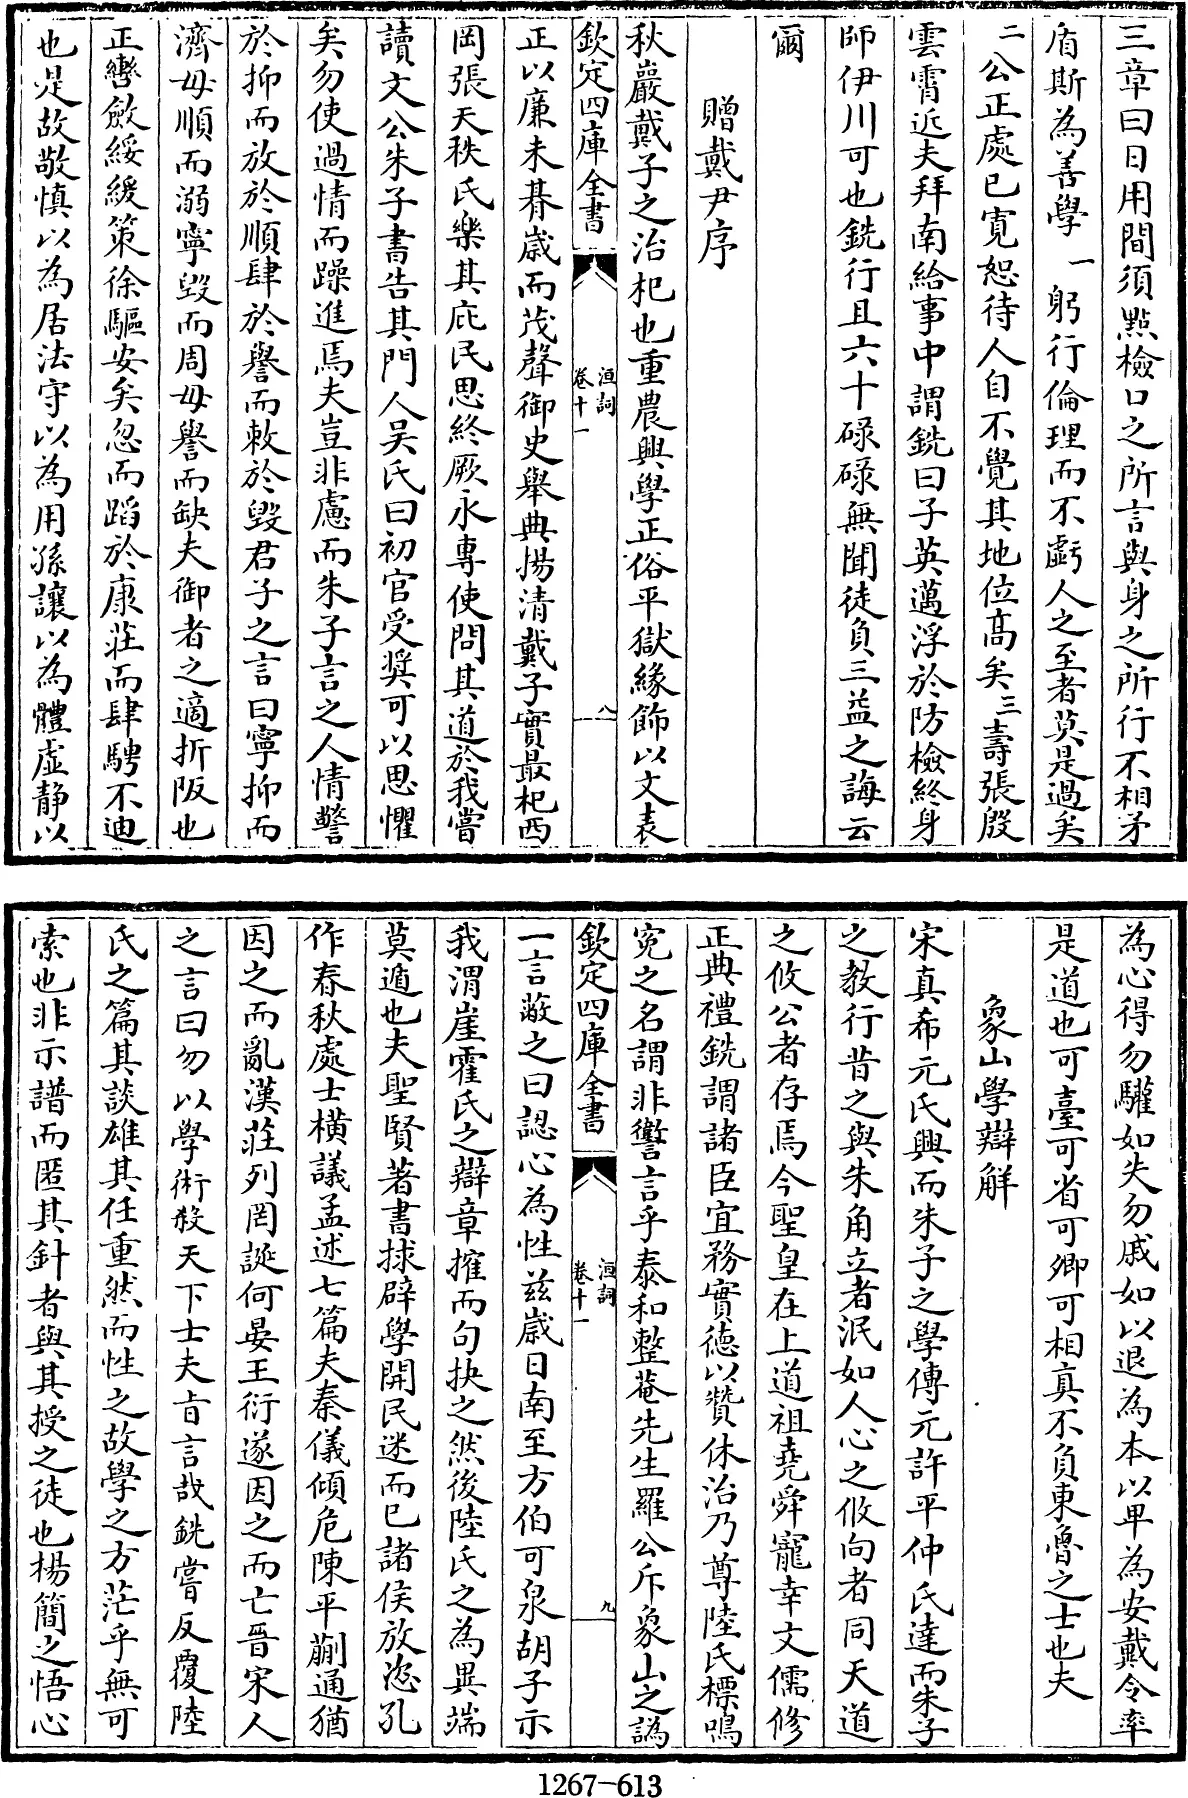 三章曰日用間須點檢口之所言與身之所行不相矛
盾斯為善學一躬行倫理而不虧人之至者莫是過矣
二公正處已寛恕待人自不覺其地位髙矣三壽張殷
雲霄近夫拜南給事中謂銑曰子英邁浮於防檢終身
師伊川可也銑行且六十碌碌無聞徒負三益之誨云
爾
贈戴尹序
秋巖戴子之治杞也重農興學正俗平獄緣飾以文表
欽定四庫全書
洹詞
卷十一
八
正以廉未朞歲而茂聲御史舉典揚清戴子實最杞西
岡張天秩氏樂其庇民思終厥永專使問其道於我嘗
讀文公朱子書告其門人吴氏曰初官受奨可以思懼
矣勿使過情而躁進焉夫豈非慮而朱子言之人情警
於抑而放於順肆於譽而敕於毁君子之言曰寧抑而
濟毋順而溺寧毁而周毋譽而缺夫御者之適折阪也
正轡歛綏緩策徐驅安矣忽而蹈於康莊而肆騁不迪
也是故敬慎以為居法守以為用孫讓以為體虚静以
為心得勿驩如失勿戚如以退為本以卑為安戴令率
是道也可臺可省可卿可相真不負東魯之士也夫
象山學辯解
宋真希元氏興而朱子之學傳元許平仲氏達而朱子
之教行昔之與朱角立者泯如人心之攸向者同天道
之攸公者存焉今聖皇在上道祖堯舜寵幸文儒修
正典禮銑謂諸臣宜務實德以贊休治乃尊陸氏標鳴
寃之名謂非讆言乎泰和整菴先生羅公斥象山之譌
欽定四庫全書
洹詞
卷十一
九
一言蔽之曰認心為性兹歲日南至方伯可泉胡子示
我渭崖霍氏之辯章搉而句抉之然後陸氏之為異端
莫遁也夫聖賢著書捄辟學開民迷而已諸侯放恣孔
作春秋處士橫議孟述七篇夫秦儀傾危陳平蒯通猶
因之而亂漢莊列罔誕何晏王衍遂因之而亡晋宋人
之言曰勿以學術殺天下士夫旨言哉銑嘗反覆陸
氏之篇其談雄其任重然而性之故學之方茫乎無可
索也非示譜而匿其針者與其授之徒也楊簡之悟心
1267-613